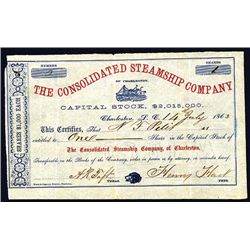 NUMBER
SHARES
OF CHARLESTON,
THE CONSOLIDATED STEAMSHIP COMPANY
CAPITAL STOCK, $2,015,000.
Charleston, S. C. 14 July 1863
This Certifies, That
is
entitled to One Share in the Capital Stock of
The Consolidated Steamship Company, of Charleston.
Transferable on the Books of the Company, either in person or by attorney, on surrender of this Certificate.
SHARES $1,000 EACH
Henry